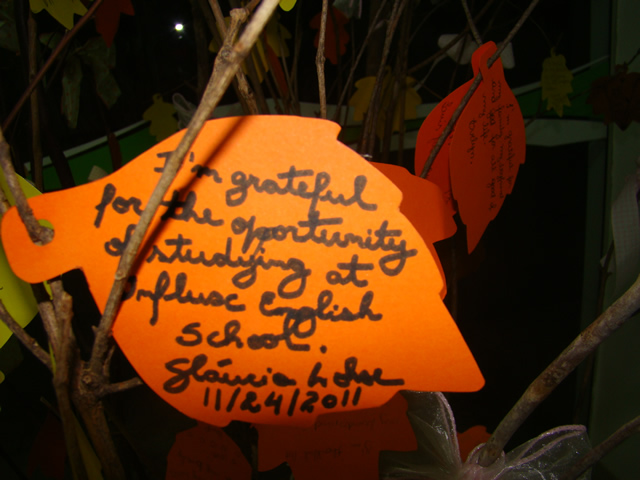 I'm grateful
for the oportunity
of studying at
Influx English
School.
Gláucia
11/24/2011